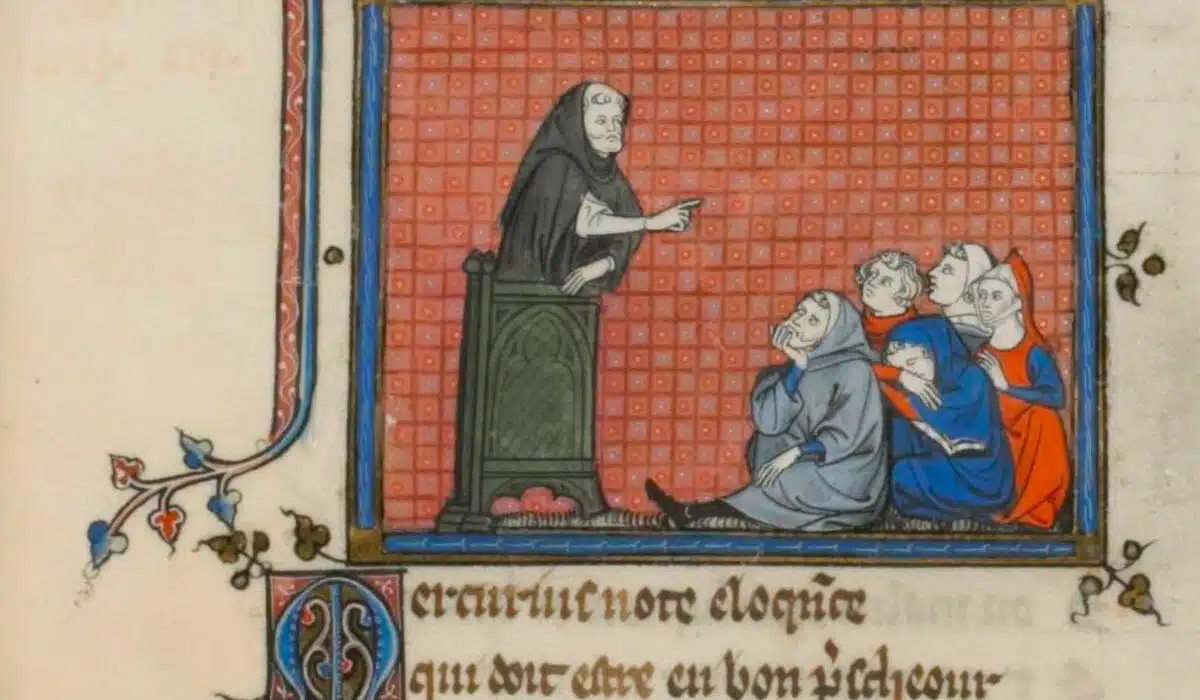 Mercurius note eloqũce
qui doit estre en bon p̃scheour